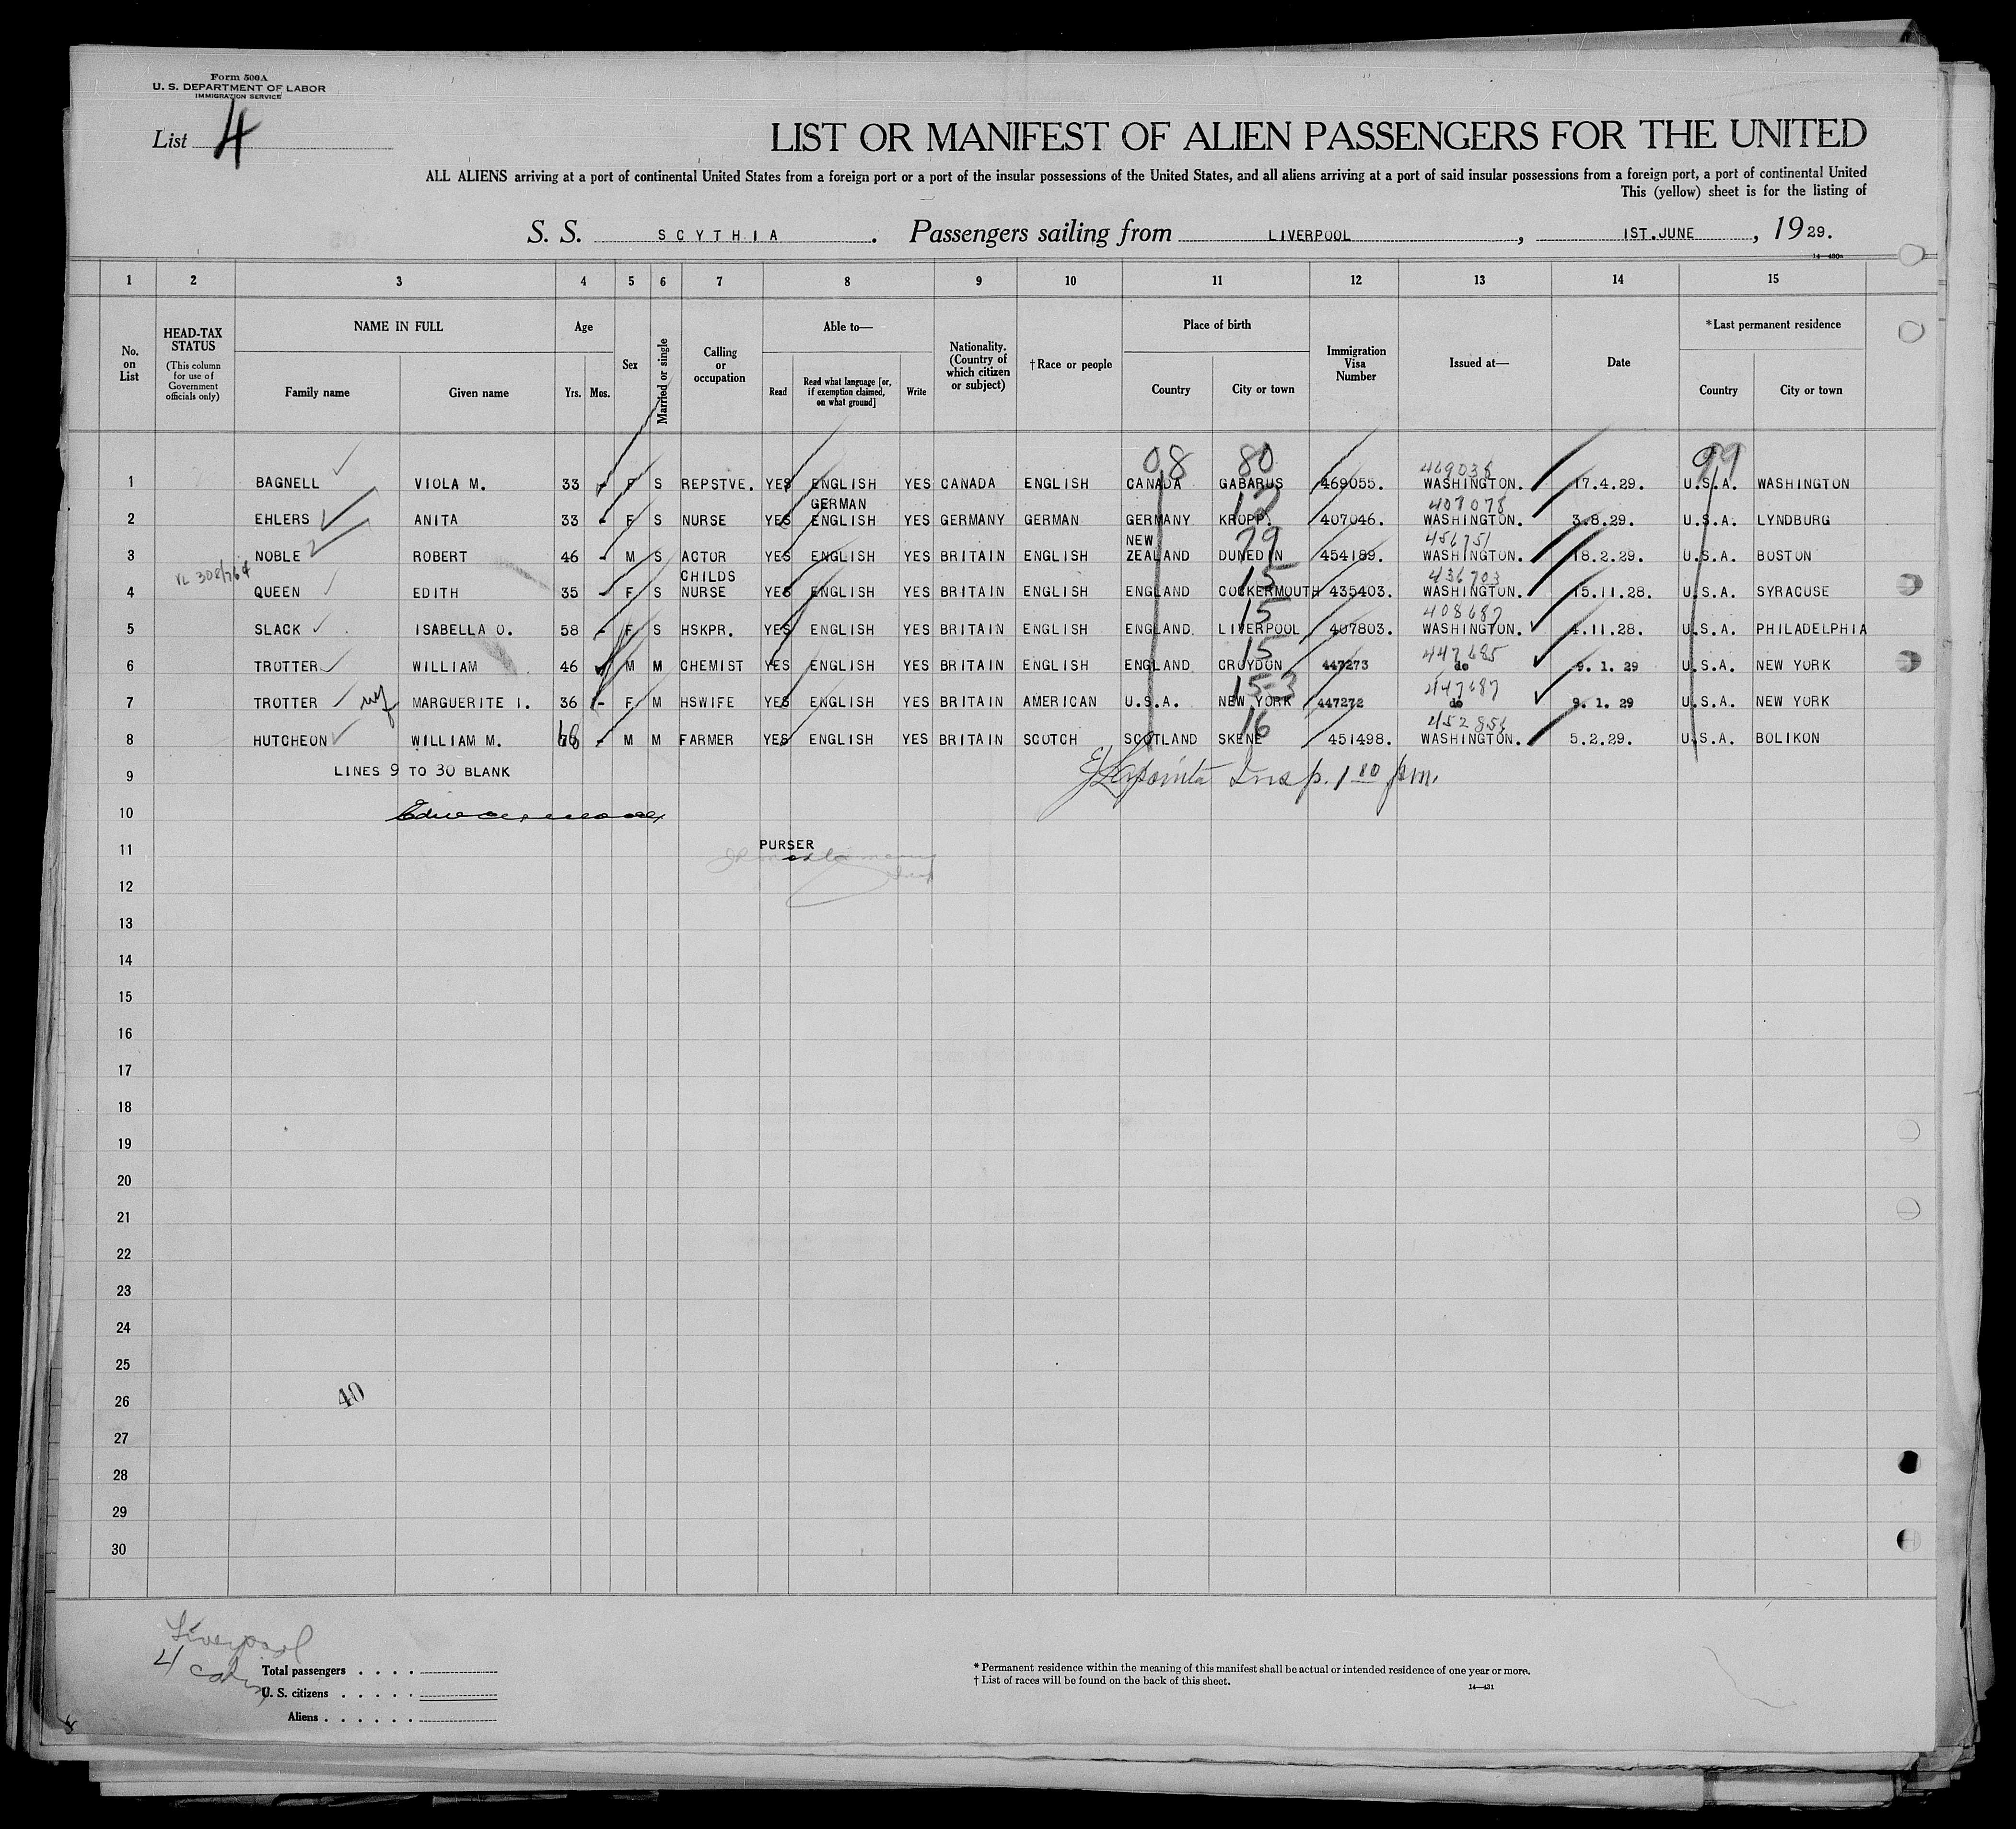 Form 500A
U. S. DEPARTMENT OF LABOR
IMMIGRATION SERVICE
List 4
LIST OR MANIFEST OF ALIEN PASSENGERS FOR THE UNITED
ALL ALIENS arriving at a port of continental United States from a foreign port or a port of the insular possessions of the United States, and all aliens arriving at a port of said insular possessions from a foreign port, a port of continental United
This (yellow) sheet is for the listing of
S. S. SCYTHIA. Passengers sailing from LIVERPOOL, 1ST.JUNE, 1929.
14—430a
1 2 3 4 5 6 7 8 9 10 11 12 13 14 15
No. on List
HEAD-TAX STATUS
(This column for use of Government officials only)
NAME IN FULL
Family name
Given name
Age
Yrs. Mos.
Sex
Married or single
Calling or occupation
Able to—
Read
Read what language [or, if exemption claimed, on what ground]
Write
Nationality. (Country of which citizen or subject)
†Race or people
Place of birth
Country
City or town
Immigration Visa Number
Issued at—
Date
*Last permanent residence
Country
City or town
08 80 99
469038
1 BAGNELL VIOLA M. 33 - F S REPSTVE. YES ENGLISH YES CANADA ENGLISH CANADA GABARUS 469055. WASHINGTON. 17.4.29. U.S.A. WASHINGTON
GERMAN 12 408078
2 EHLERS ANITA 33 - F S NURSE YES ENGLISH YES GERMANY GERMAN GERMANY KROPP. 407046. WASHINGTON. 3.8.29. U.S.A. LYNDBURG
NEW 79 456751
3 NOBLE ROBERT 46 - M S ACTOR YES ENGLISH YES BRITAIN ENGLISH ZEALAND DUNEDIN 454189. WASHINGTON. 18.2.29. U.S.A. BOSTON
VL 308/764 CHILDS 15 436703
4 QUEEN EDITH 35 - F S NURSE YES ENGLISH YES BRITAIN ENGLISH ENGLAND COCKERMOUTH 435403. WASHINGTON. 15.11.28. U.S.A. SYRACUSE
15 408687
5 SLACK ISABELLA O. 58 - F S HSKPR. YES ENGLISH YES BRITAIN ENGLISH ENGLAND. LIVERPOOL 407803. WASHINGTON. 1.11.28. U.S.A. PHILADELPHIA
15 447685
6 TROTTER WILLIAM 46 M M CHEMIST YES ENGLISH YES BRITAIN ENGLISH ENGLAND CROYDON 447273 do 9. 1. 29 U.S.A. NEW YORK
15-3 447687
7 TROTTER MARGUERITE I. 36 - F M HSWIFE YES ENGLISH YES BRITAIN AMERICAN U.S.A. NEW YORK 447272 do 9. 1. 29 U.S.A. NEW YORK
16
8 HUTCHEON WILLIAM M. 68 - M M FARMER YES ENGLISH YES BRITAIN SCOTCH SCOTLAND SKENE 451498. WASHINGTON. 5.2.29. U.S.A. BOLIKON
9 LINES 9 TO 30 BLANK
Insp. 1 80 pm.
10
11 PURSER
12
13
14
15
16
17
18
19
20
21
22
23
24
25
26
40
27
28
29
30
Liverpool
4 cabin
Total passengers . . . .
U. S. citizens . . . . .
Aliens . . . . . .
* Permanent residence within the meaning of this manifest shall be actual or intended residence of one year or more.
† List of races will be found on the back of this sheet.
14—431